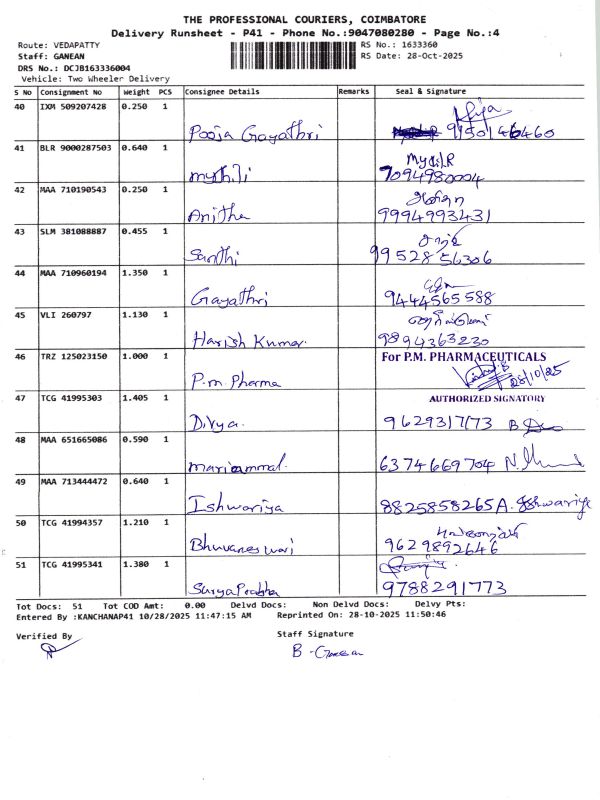 THE PROFESSIONAL COURIERS, COIMBATORE
Delivery Runsheet - P41 - Phone No.:9047080280 - Page No.:4
Route: VEDAPATTY RS No.: 1633360
Staff: GANEAN RS Date: 28-Oct-2025
DRS No.: DCJB163336004
Vehicle: Two Wheeler Delivery
S No Consignment No Weight PCS Consignee Details Remarks Seal & Signature
40 IXM 509207428 0.250 1
Pooja Gayathri 9150146460
41 BLR 9000287503 0.640 1 Mythili R
mythili 7094980004
42 MAA 710190543 0.250 1
Anitha 9994993431
43 SLM 381088887 0.455 1
Santhi 9952856306
44 MAA 710960194 1.350 1
Gayathri 9444565588
45 VLI 260797 1.130 1
Harish Kumar 9894363230
46 TRZ 125023150 1.000 1 For P.M. PHARMACEUTICALS
P.m. Pharma 28/10/25
47 TCG 41995303 1.405 1 AUTHORIZED SIGNATORY
Divya 9629317173 B
48 MAA 651665086 0.590 1
mariammal 6374669704 N.
49 MAA 713444472 0.640 1
Ishwariya 8825858265 A. Ishwariya
50 TCG 41994357 1.210 1
Bhuvaneswari 9629892646
51 TCG 41995341 1.380 1
Surya Prabha 9788291773
Tot Docs: 51 Tot COD Amt: 0.00 Delvd Docs: Non Delvd Docs: Delvy Pts:
Entered By :KANCHANAP41 10/28/2025 11:47:15 AM Reprinted On: 28-10-2025 11:50:46
Verified By Staff Signature
B -